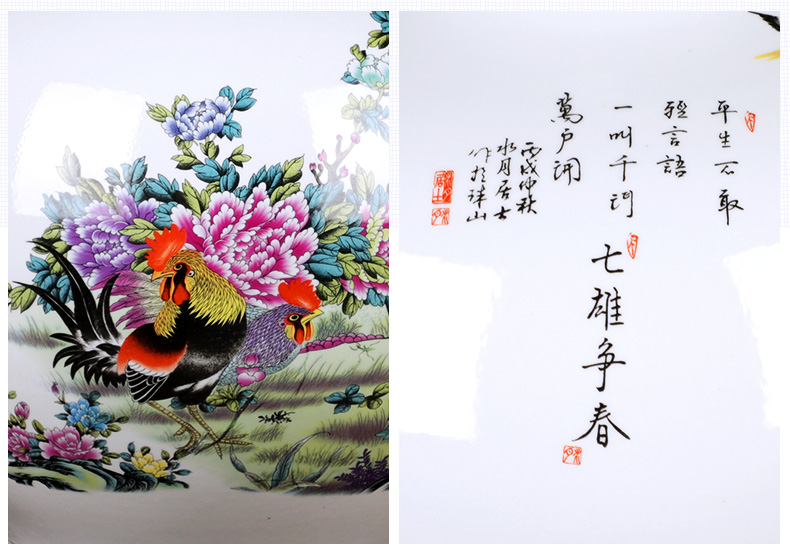 平生不敢
輕言語
一叫千門
萬戶開
丙戌仲秋
水月居士
作於珠山
七雄争春